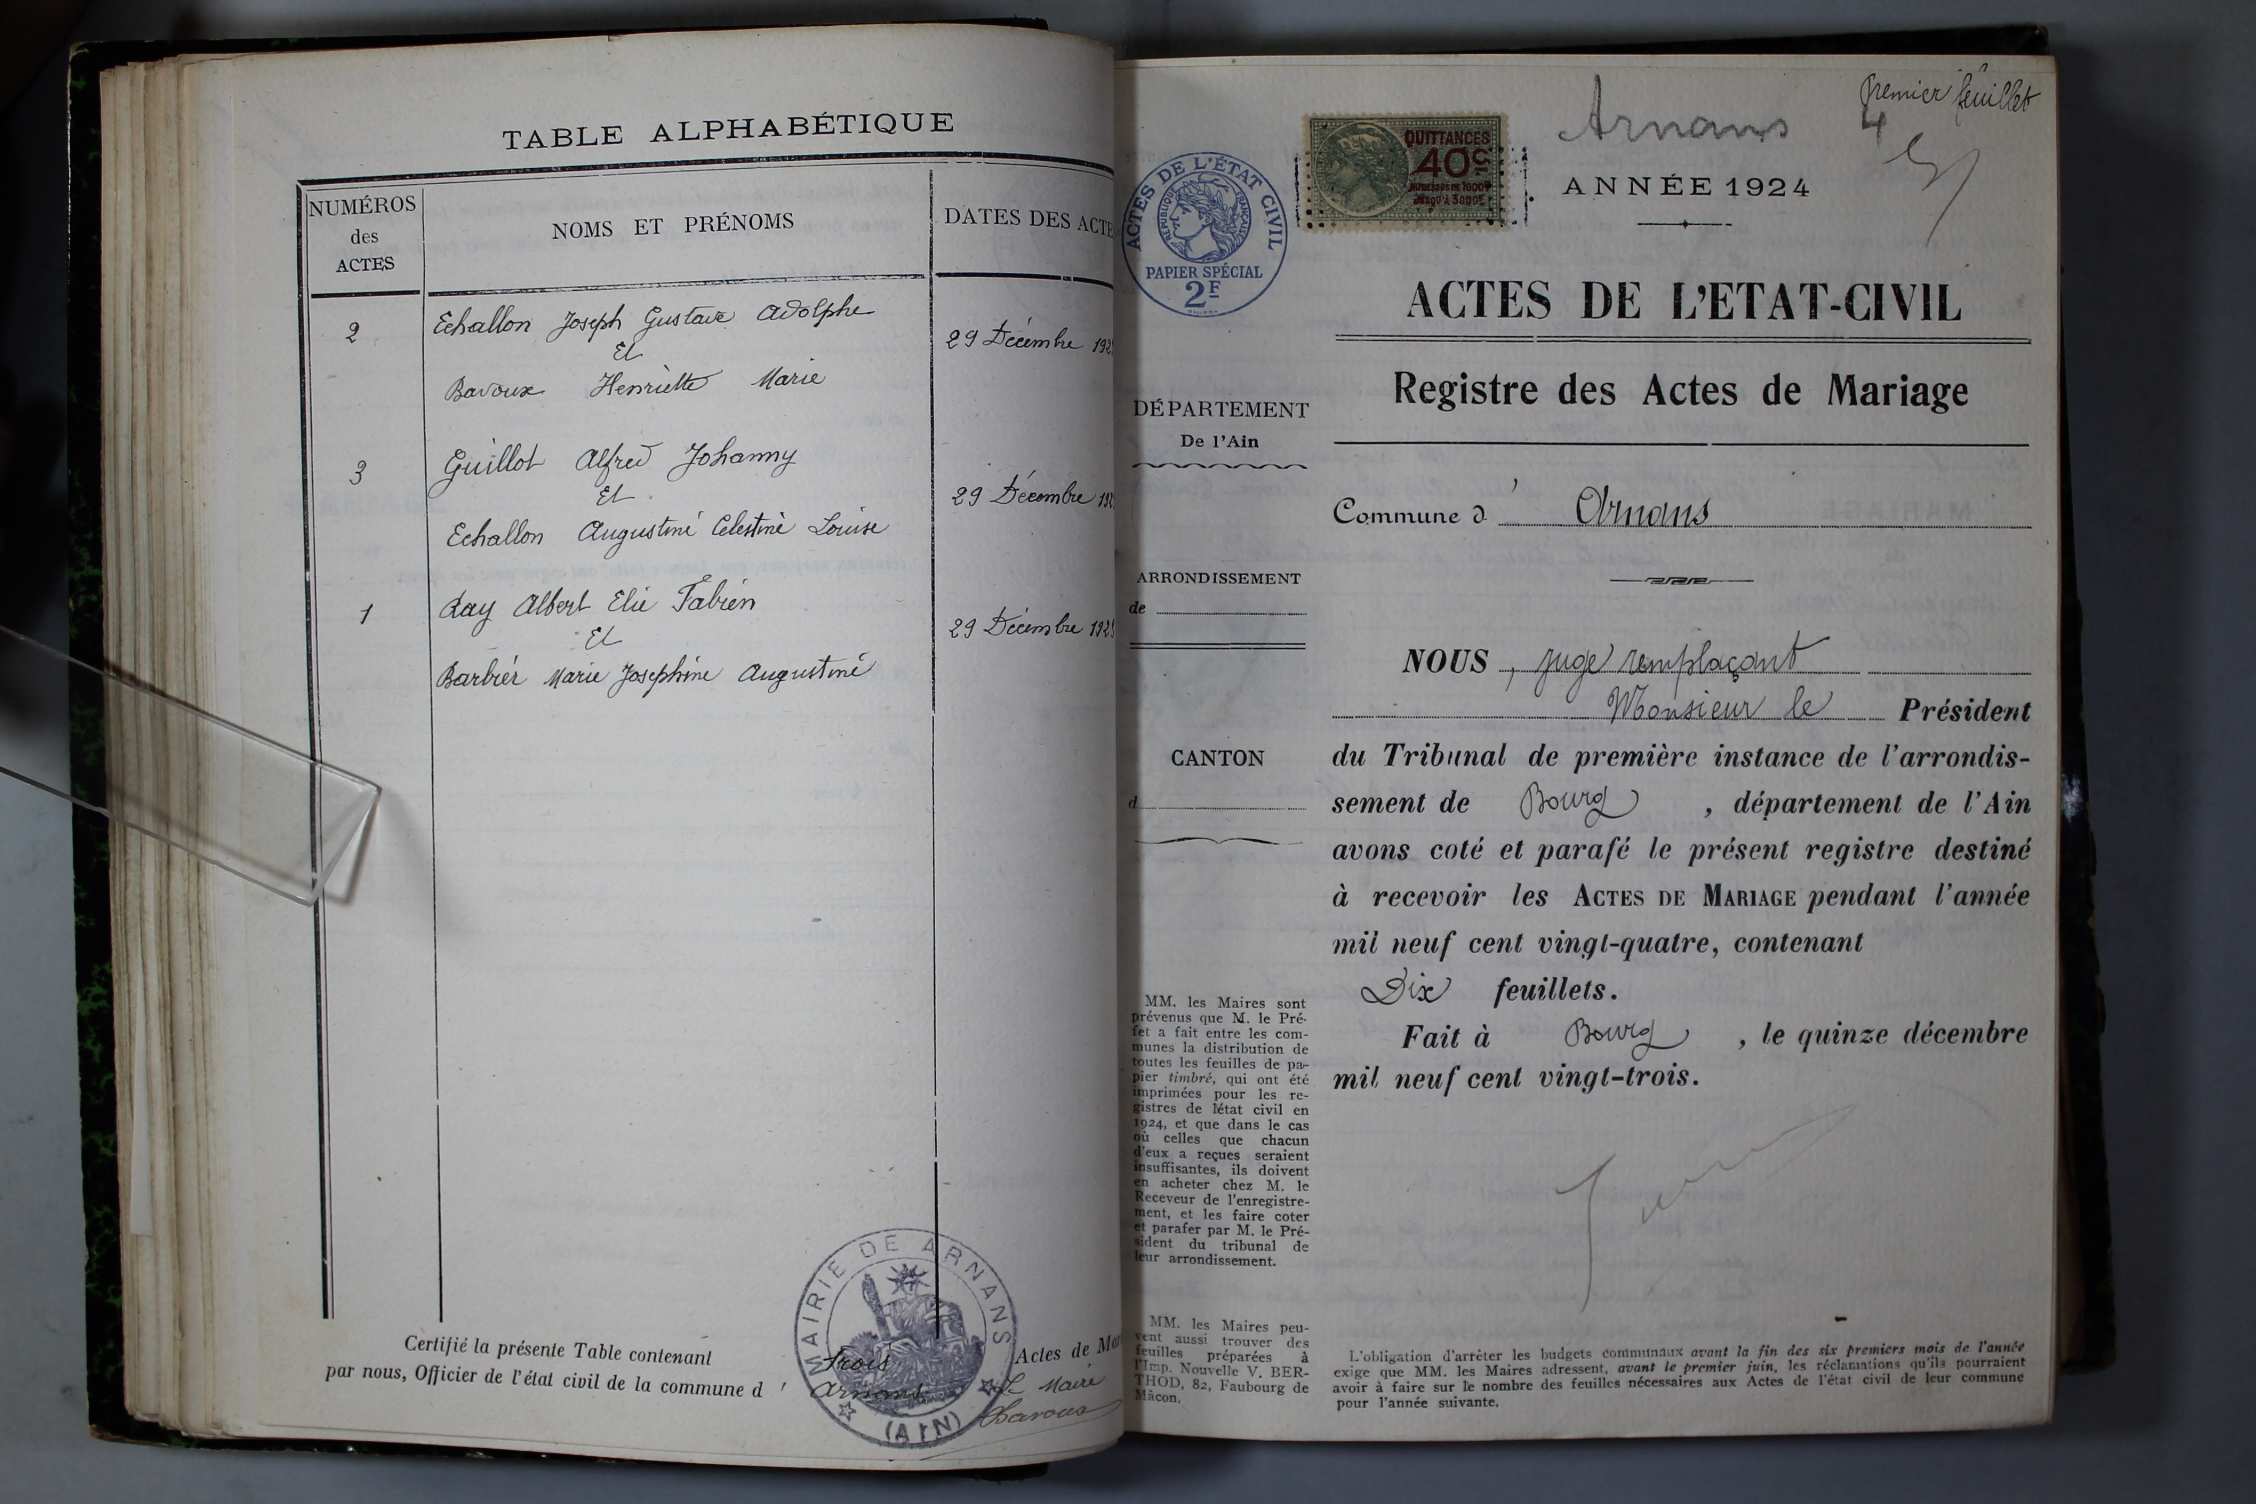 TABLE ALPHABÉTIQUE
NUMÉROS
des
ACTES
NOMS ET PRÉNOMS
DATES DES ACTE
2
Echallon Joseph Gustave Adolphe
Et
Bavoux Henriette Marie
29 Décembre 192
3
Guillot Alfred Johanny
Et
Echallon Augustine Celestine Louise
29 Décembre 192
1
Ray Albert Elie Fabien
Et
Barbier Marie Josephine Augustine
29 Décembre 192
Certifié la présente Table contenant Trois Actes de Mar
par nous, Officier de l'état civil de la commune d' Arnans Le Maire
MAIRIE DE ARNANS
(AIN)
premier feuillet
Arnans
4
ANNÉE 1924
ACTES DE L'ÉTAT CIVIL
RÉPUBLIQUE FRANÇAISE
PAPIER SPÉCIAL
2F
QUITTANCES
40c
ACTES DE L'ETAT-CIVIL
Registre des Actes de Mariage
DÉPARTEMENT
De l'Ain
Commune d' Arnans
ARRONDISSEMENT
de
CANTON
d
NOUS, juge remplaçant
Monsieur le Président
du Tribunal de première instance de l'arrondis-
sement de Bourg, département de l'Ain
avons coté et parafé le présent registre destiné
à recevoir les ACTES DE MARIAGE pendant l'année
mil neuf cent vingt-quatre, contenant
Dix feuillets.
Fait à Bourg, le quinze décembre
mil neuf cent vingt-trois.
MM. les Maires sont
prévenus que M. le Pré-
fet a fait entre les com-
munes la distribution de
toutes les feuilles de pa-
pier timbré, qui ont été
imprimées pour les re-
gistres de l'état civil en
1924, et que dans le cas
où celles que chacun
d'eux a reçues seraient
insuffisantes, ils doivent
en acheter chez M. le
Receveur de l'enregistre-
ment, et les faire coter
et parafer par M. le Pré-
sident du tribunal de
leur arrondissement.
MM. les Maires peu-
vent aussi trouver des
feuilles préparées à
l'Imp. Nouvelle V. BER-
THOD, 82, Faubourg de
Mâcon.
L'obligation d'arrêter les budgets communaux avant la fin des six premiers mois de l'année
exige que MM. les Maires adressent, avant le premier juin, les réclamations qu'ils pourraient
avoir à faire sur le nombre des feuilles nécessaires aux Actes de l'état civil de leur commune
pour l'année suivante.